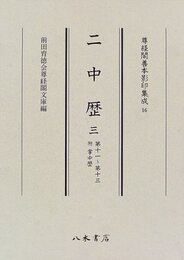 尊経閣善本影印集成 16
二中歴 三
第十一～第十三
附 掌中歴
前田育徳会尊経閣文庫編
八木書店